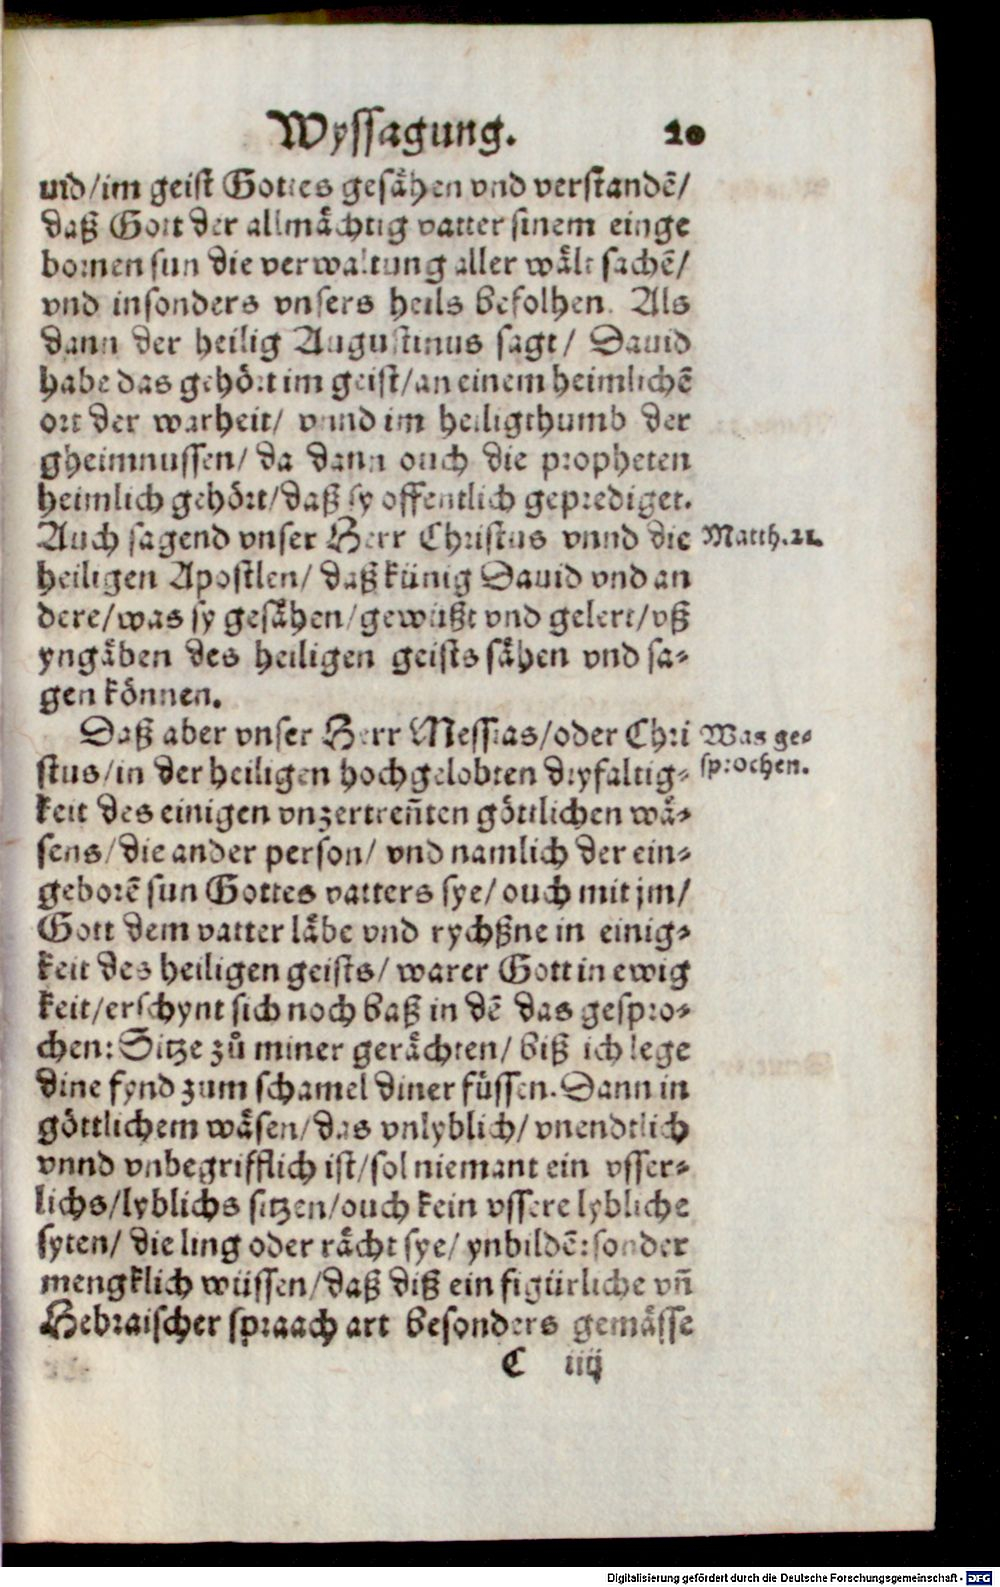 Wyssagung. 20
uid/im geist Gottes gesåhen vnd verstandẽ/
daß Gott der allmåchtig vatter sinem einge
bornen sun die verwaltung aller wålt sachẽ/
vnd insonders vnsers heils befolhen. Als
dann der heilig Augustinus sagt/ Dauid
habe das gehört im geist/an einem heimlichẽ
ort der warheit/ vnnd im heiligthumb der
gheimnussen/ da dann ouch die propheten
heimlich gehört/daß sy offentlich geprediget.
Auch sagend vnser Herr Christus vnnd die
Matth.22.
heiligen Apostlen/ daß künig Dauid vnd an
dere/was sy gesåhen/gewüßt vnd gelert/vß
yngåben des heiligen geists såhen vnd sa-
gen können.
Daß aber vnser Herr Messias/oder Chri
Was ge-
sprochen.
stus/in der heiligen hochgelobten dryfaltig-
keit des einigen vnzertreñten göttlichen wå-
sens/die ander person/ vnd namlich der ein-
geborẽ sun Gottes vatters sye/ouch mit jm/
Gott dem vatter låbe vnd rychßne in einig-
keit des heiligen geists/ warer Gott in ewig
keit/erschynt sich noch baß in dẽ das gespro-
chen: Sitze zů miner geråchten/ biß ich lege
dine fynd zum schamel diner füssen. Dann in
göttlichem wåsen/das vnlyblich/ vnendtlich
vnnd vnbegrifflich ist/sol niemant ein vsser-
lichs/lyblichs sitzen/ouch kein vssere lybliche
syten/ die ling oder råcht sye/ ynbildẽ: sonder
mengklich wüssen/daß diß ein figürliche vñ
Hebraischer spraach art besonders gemåsse
C iiij
Digitalisierung gefördert durch die Deutsche Forschungsgemeinschaft - DFG